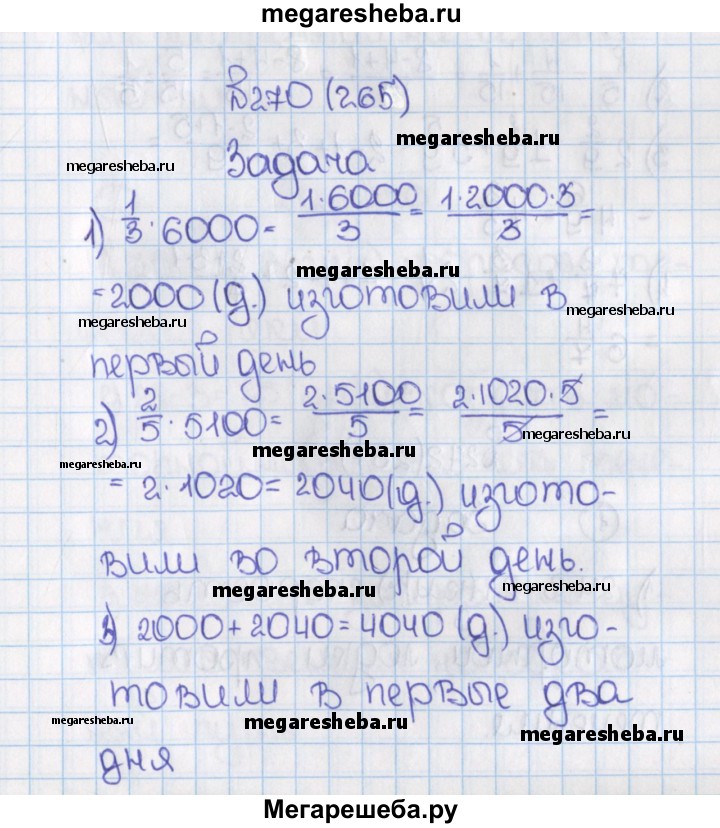 megaresheba.ru
№270 (265)
megaresheba.ru
megaresheba.ru
Задача
1) 1/3 · 6000 = 1·6000/3 = 1·2000·3/3 =
megaresheba.ru
= 2000 (д.) изготовили в
megaresheba.ru
megaresheba.ru
первый день
2) 2/5 · 5100 = 2·5100/5 = 2·1020·5/5 =
megaresheba.ru
megaresheba.ru
megaresheba.ru
= 2·1020 = 2040 (д.) изгото-
вили во второй день.
megaresheba.ru
megaresheba.ru
3) 2000 + 2040 = 4040 (д.) изго-
товили в первые два
megaresheba.ru
megaresheba.ru
megaresheba.ru
дня
Мегарешеба.ру